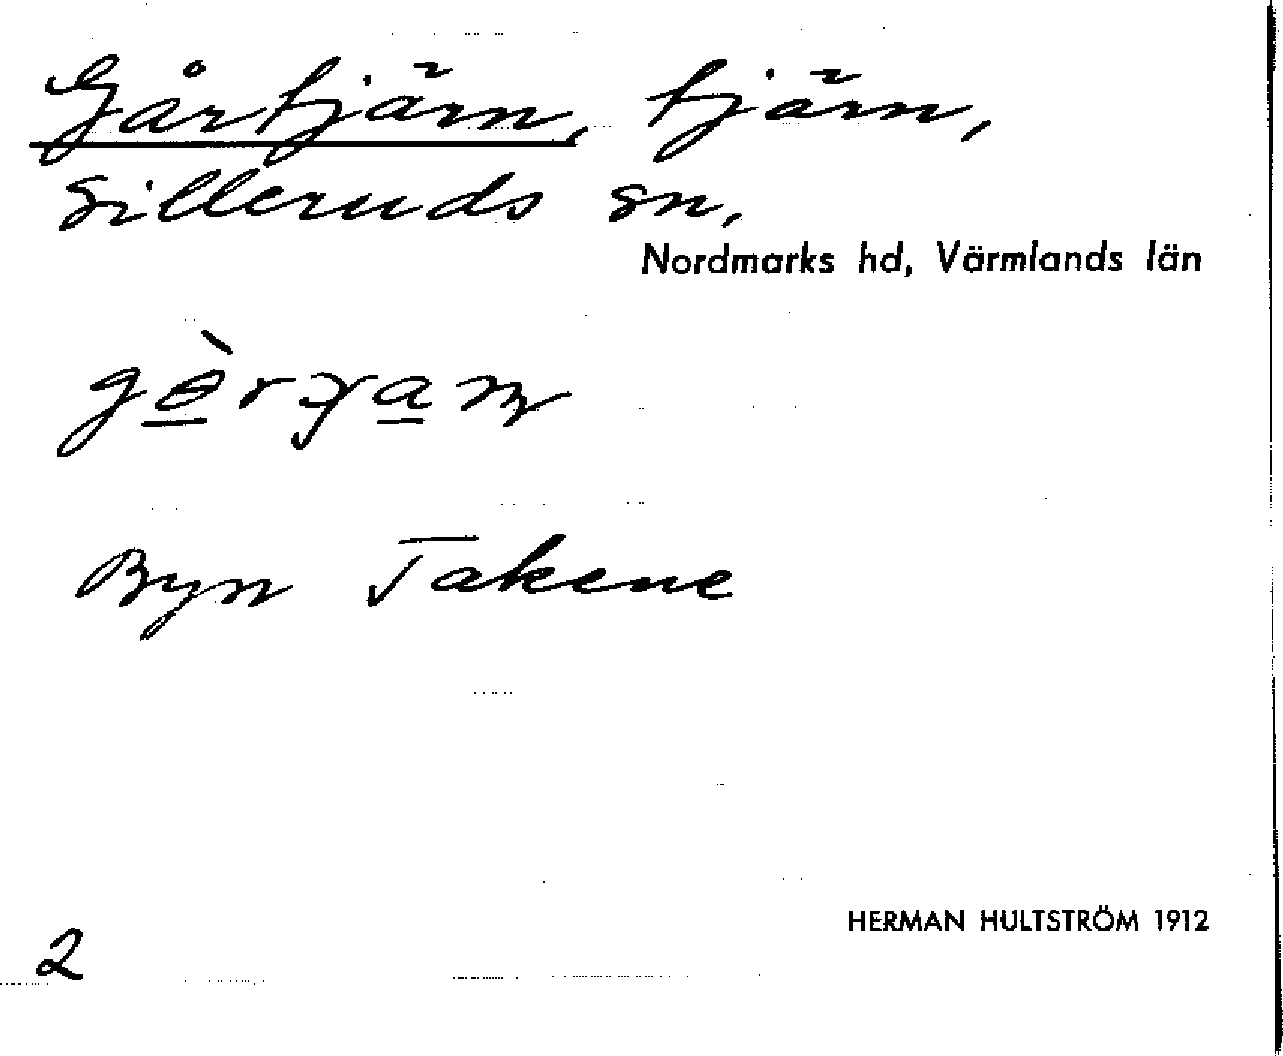 Gårtjärn, tjärn,
Silleruds sn,
Nordmarks hd, Värmlands län
Byn Takene
HERMAN HULTSTRÖM 1912
2